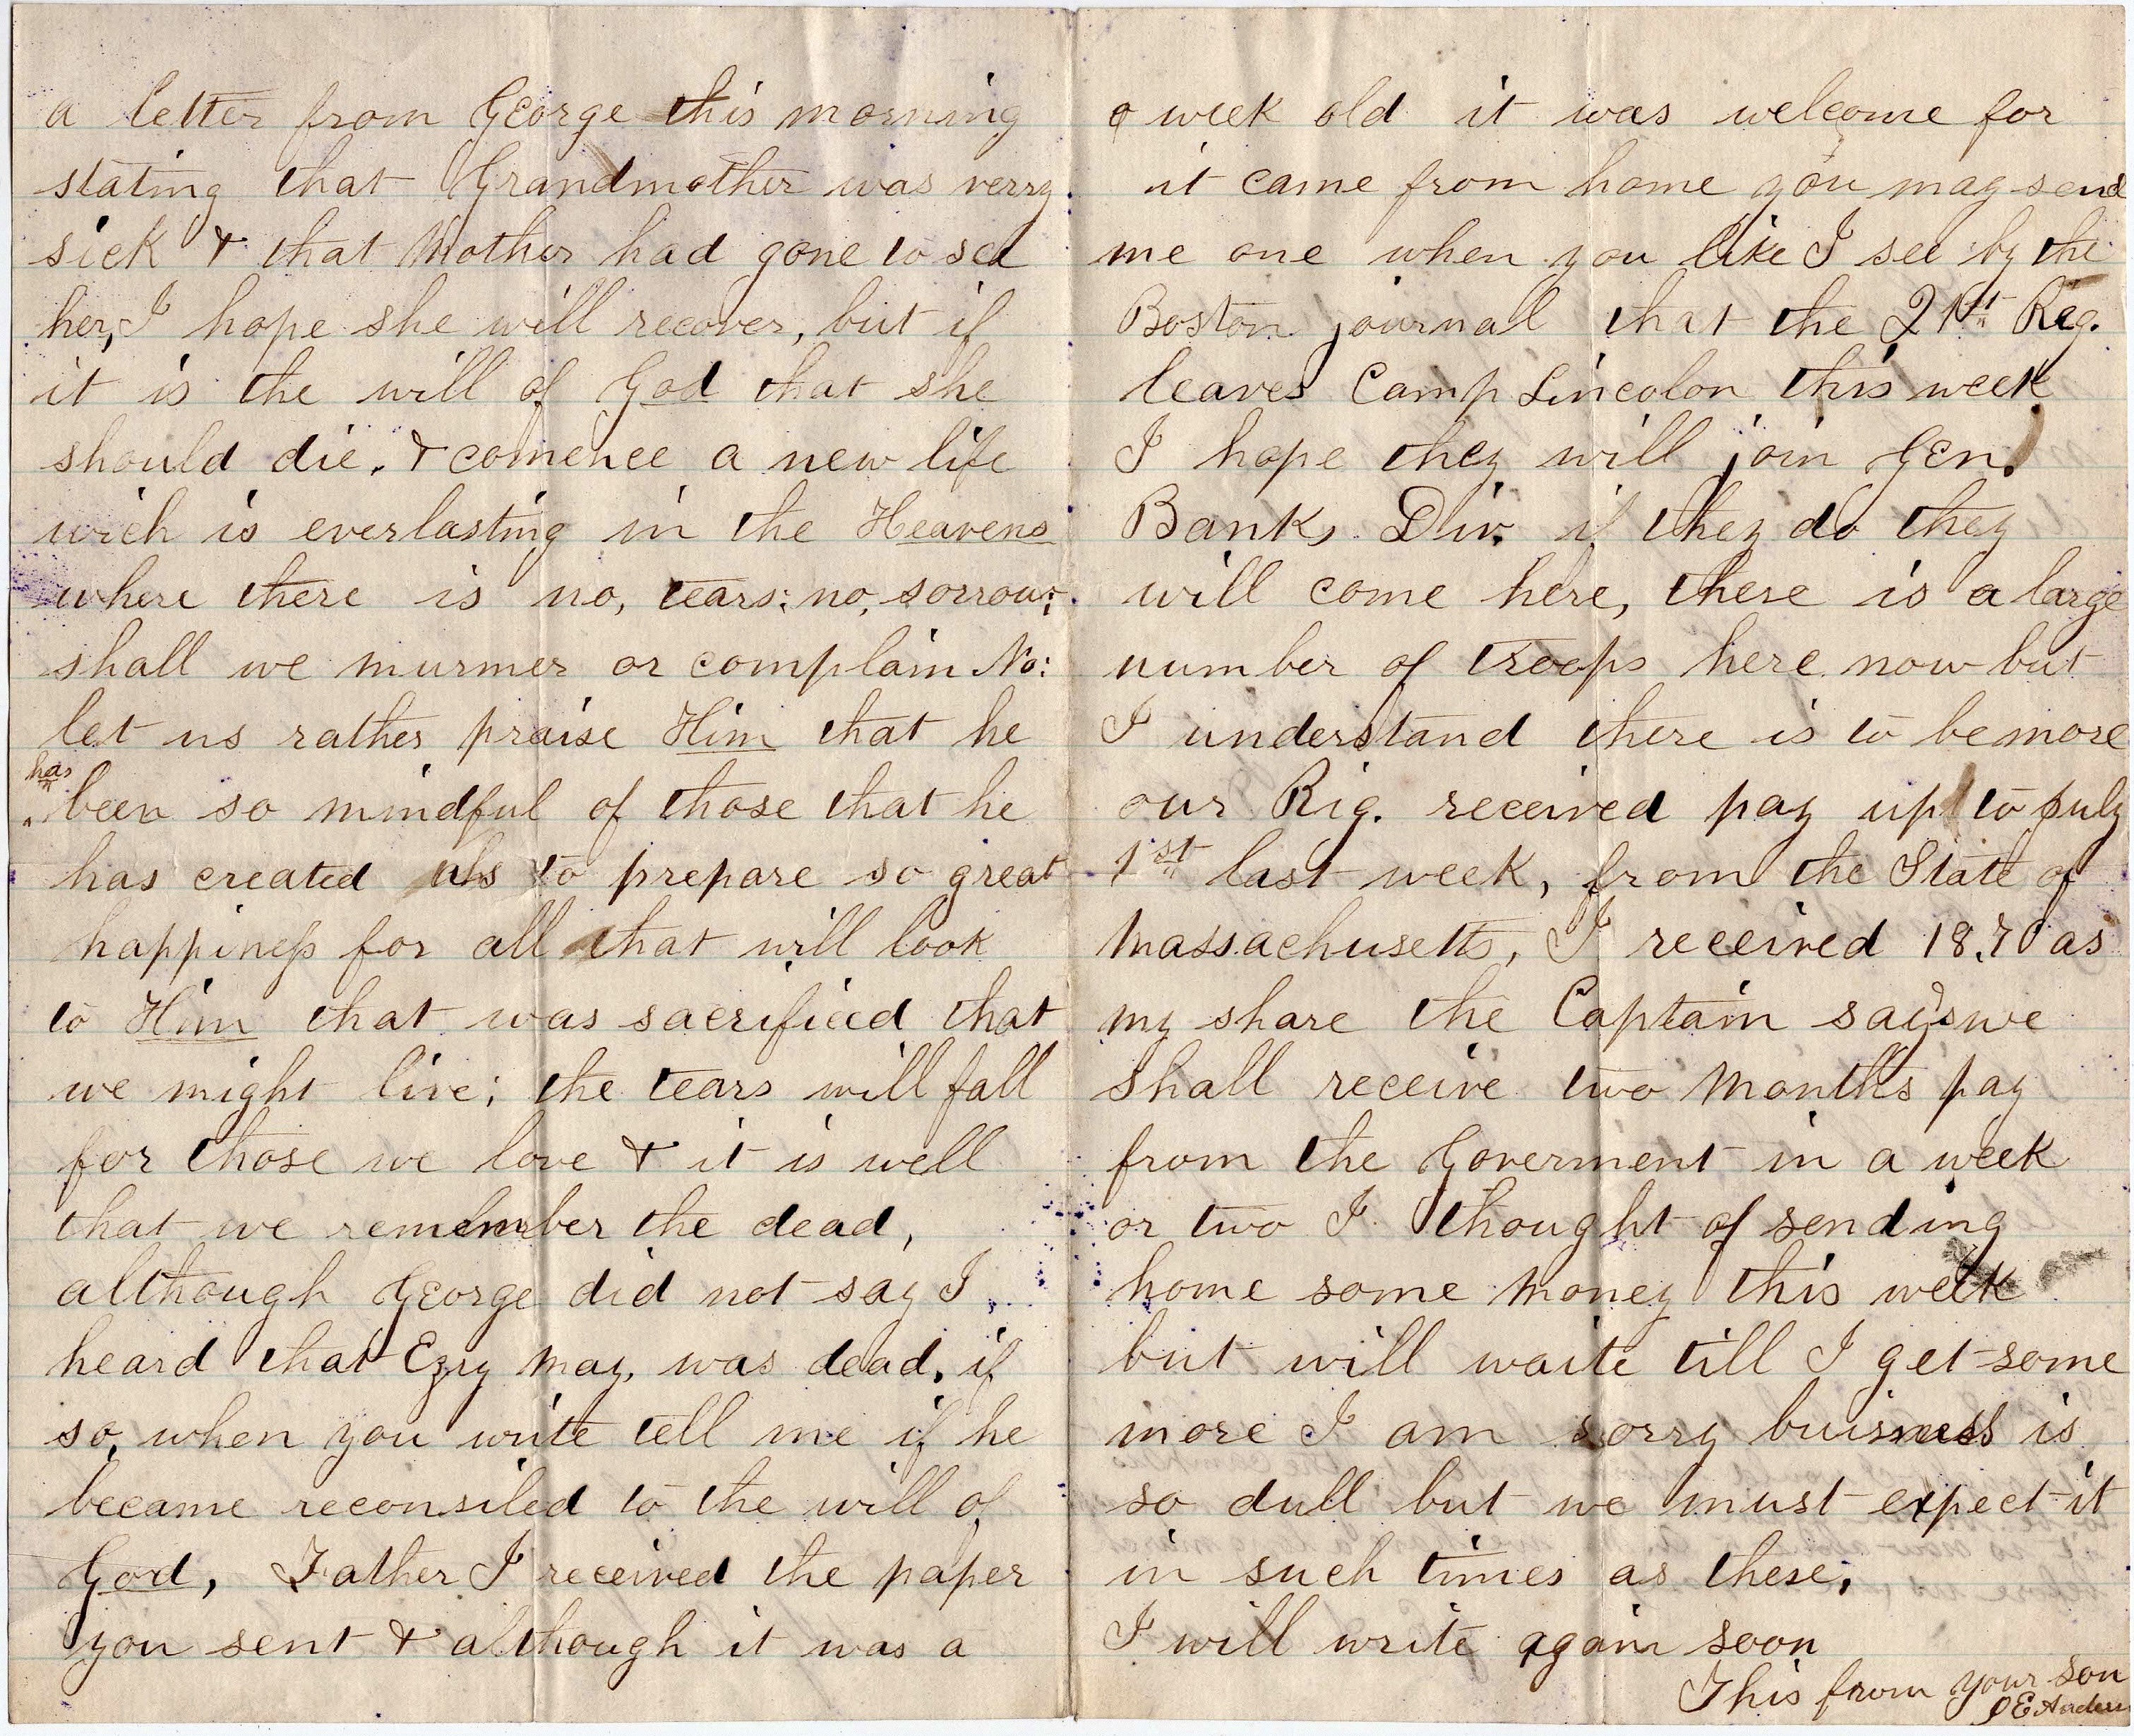 a letter from George this morning
stating that Grandmother was verry
sick & that Mother had gone to see
her, I hope she will recover, but if
it is the will of God that she
should die. & comence a new life
wich is everlasting in the Heavens
where there is no, tears; no, sorrow;
shall we murmer or complain No:
let us rather praise Him that he
has
been so mindful of those that he
has created as to prepare so great
happiness for all that will look
to Him that was sacrificed that
we might live; the tears will fall
for those we love & it is well
that we remember the dead,
although George did not say I
heard that Ezry May, was dead, if
so, when you write tell me if he
became reconsiled to the will of
God, Father I received the paper
you sent & although it was a
a week old it was welcome for
it came from home you may send
me one when you like I see by the
Boston journal that the 21st Reg.
leaves Camp Lincolon this week
I hope they will join Gen.
Banks Div. if they do they
will come here, there is a large
number of troops here now but
I understand there is to be more
our Rig. received pay up to July
1st last week, from the State of
Massachusetts, I received 18.70 as
my share the Captain says we
shall receive two months pay
from the Goverment in a week
or two I thought of sending
home some money this week
but will waite till I get some
more I am sorry buisness is
so dull but we must expect it
in such times as these.
I will write again soon
This from your son
J E Anderson